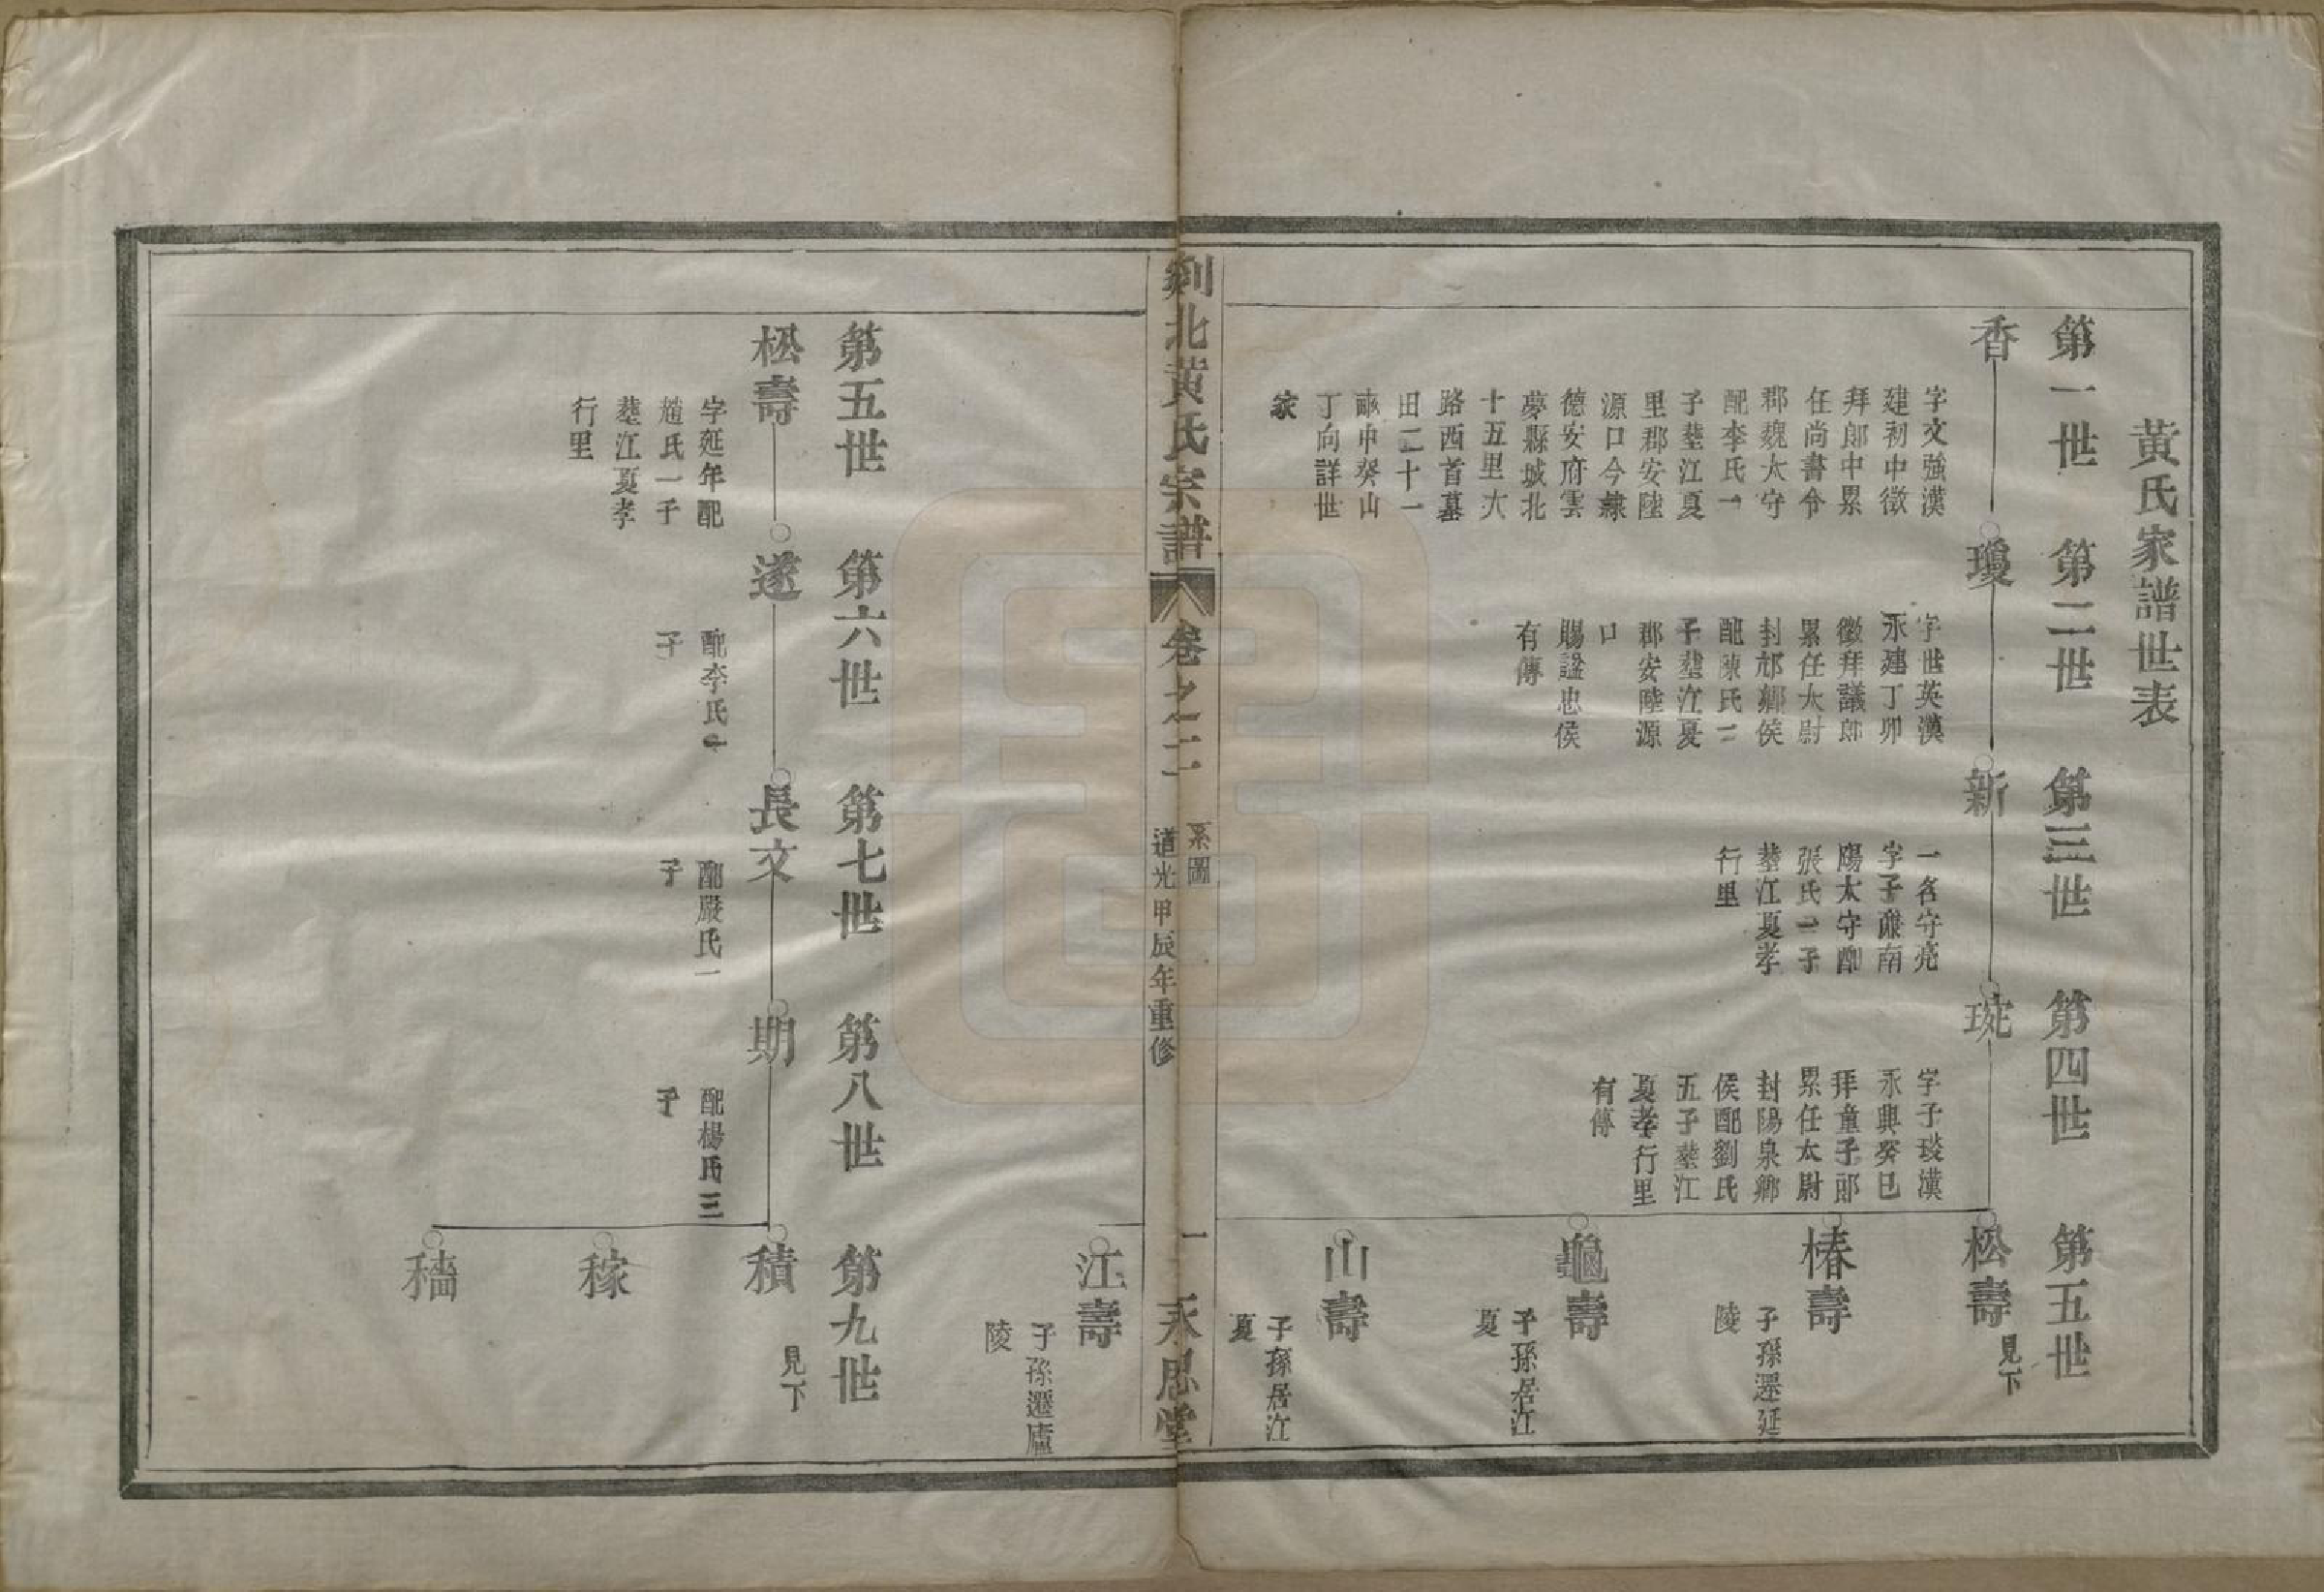 黃氏家譜世表
第一世
第二世
第三世
第四世
第五世
香
字文強漢
建初中徵
拜郎中累
任尚書令
郡魏太守
配李氏一
子塟江夏
里郡安陸
源口今隸
德安府雲
夢縣城北
十五里大
路西首墓
田二十一
畝申癸山
丁向詳世
家
瓊
字世英漢
永建丁卯
徵拜議郎
累任太尉
封邟鄉侯
配陳氏二
子塟江夏
郡安陸源
口
賜諡忠侯
有傳
新
一名守亮
字子廉南
陽太守配
張氏一子
塟江夏孝
行里
琬
字子琰漢
永興癸巳
拜童子郎
累任太尉
封陽泉鄉
侯配劉氏
五子塟江
夏孝行里
有傳
松壽
見下
椿壽
子孫遷延
陵
龜壽
子孫居江
夏
山壽
子孫居江
夏
剡北黃氏宗譜
卷之二
系圖
道光甲辰年重修
一
永思堂
江壽
子孫遷廬
陵
第五世
第六世
第七世
第八世
第九世
松壽
字延年配
趙氏一子
塟江夏孝
行里
遂
配李氏一
子
長文
配嚴氏一
子
期
配楊氏三
子
積
見下
稼
穡